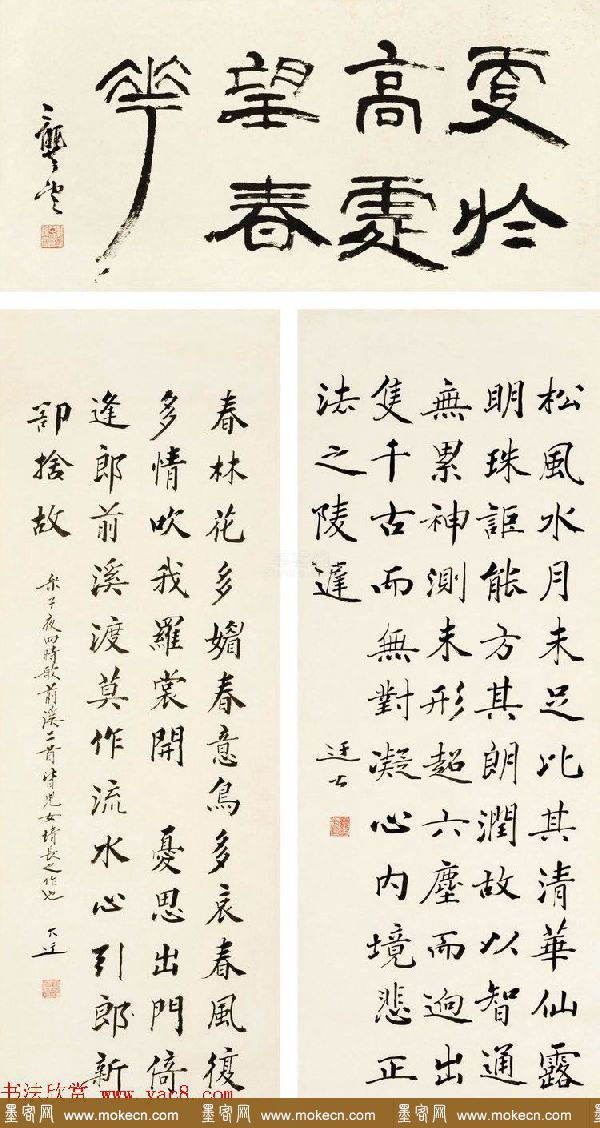 更於
高處
望春
華
龔望
松風水月未足比其清華仙露
明珠詎能方其朗潤故以智通
無累神測未形超六塵而迥出
隻千古而無對凝心内境悲正
法之陵遲
春林花多媚春意鳥多哀春風復
多情吹我羅裳開 憂思出門倚
逢郎前溪渡莫作流水心引郎新
捨故
子夜四時歌前溪二首皆兒女情長之作也
书法欣赏 www.yac8.com
墨客网 www.mokecn.com 墨客网 www.mokecn.com 墨客网 www.mokecn.com